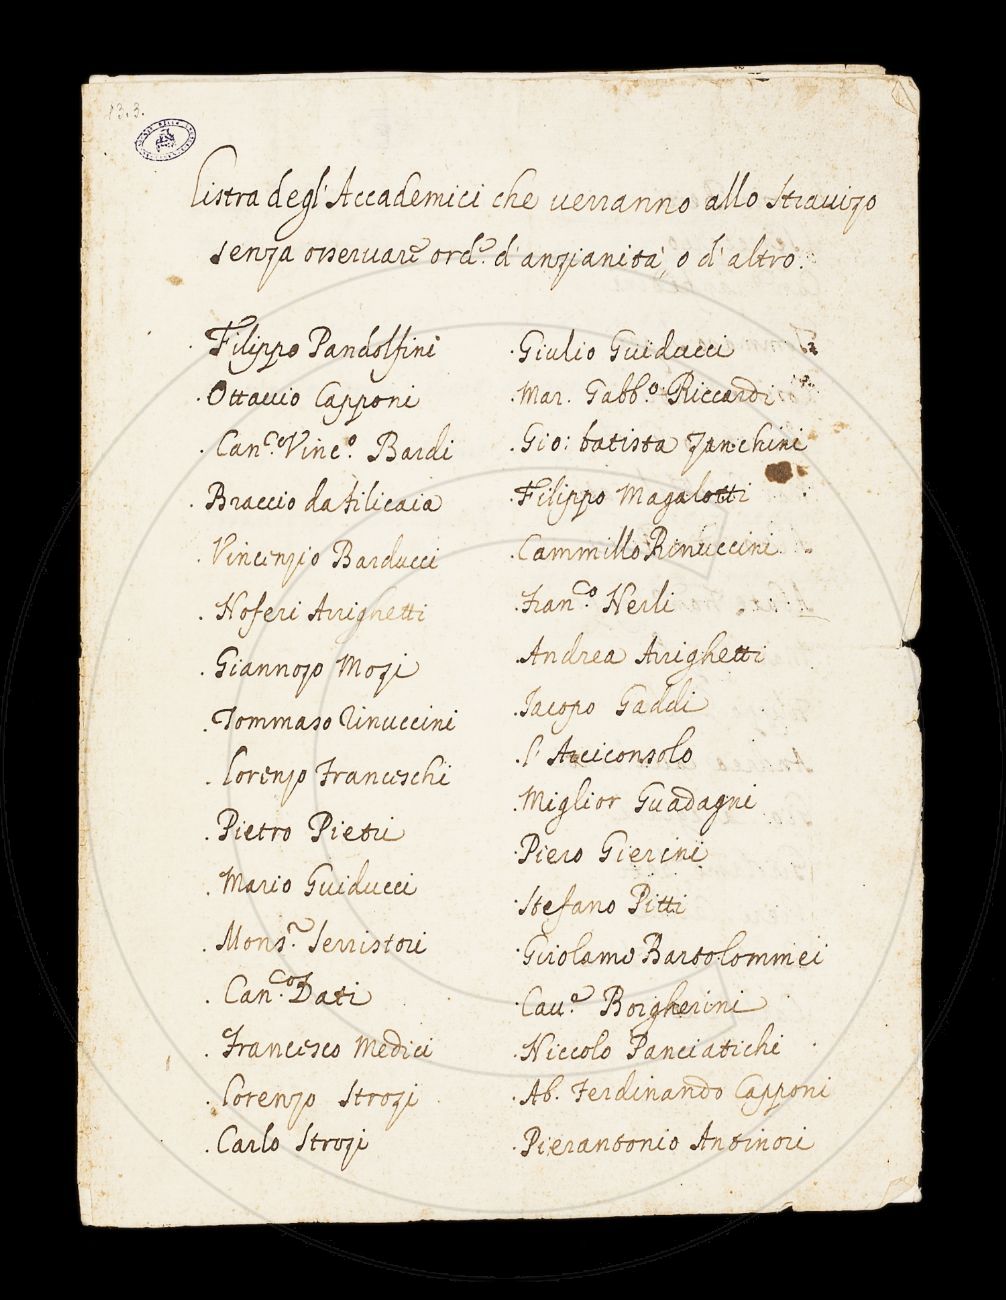 13.3.
Listra degl' Accademici che verranno allo Stravizo
senza osservare ord.e d'anzianità, o d'altro.
Filippo Pandolfini
Ottavio Capponi
Can.co Vinc.o Bardi
Braccio da filicaia
Vincenzio Barducci
Noferi Arrighetti
Giannozo Mozi
Tommaso Rinuccini
Lorenzo Franceschi
Pietro Pietri
Mario Guiducci
Mons.r Serristori
Can.co Dati
Francesco Medici
Lorenzo Strozi
Carlo Strozi
Giulio Guiducci
Mar. Gabb.o Riccardi
Gio: batista Zanchini
Filippo Magalotti
Cammillo Rinuccini
Fran.co Nerli
Andrea Arrighetti
Iacopo Gaddi
l'Arciconsolo
Miglior Guadagni
Piero Gierini
Stefano Pitti
Girolamo Bartolommei
Cav.e Borgherini
Niccolo Panciatichi
Ab. Ferdinando Capponi
Pierantonio Antinori